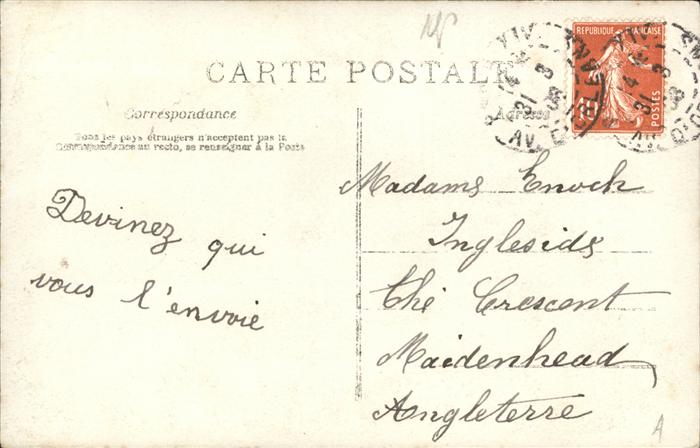 CARTE POSTALE
Correspondance
Tous les pays étrangers n'acceptent pas la
Correspondance au recto, se renseigner à la Poste
Adresse
REPUBLIQUE FRANCAISE
10
POSTES
PARIS XIV
31 3 08
AV. D'ORLEANS
Devinez qui
vous l'envoie
Madame Enoch
Ingleside
The Crescent
Maidenhead
Angleterre
A